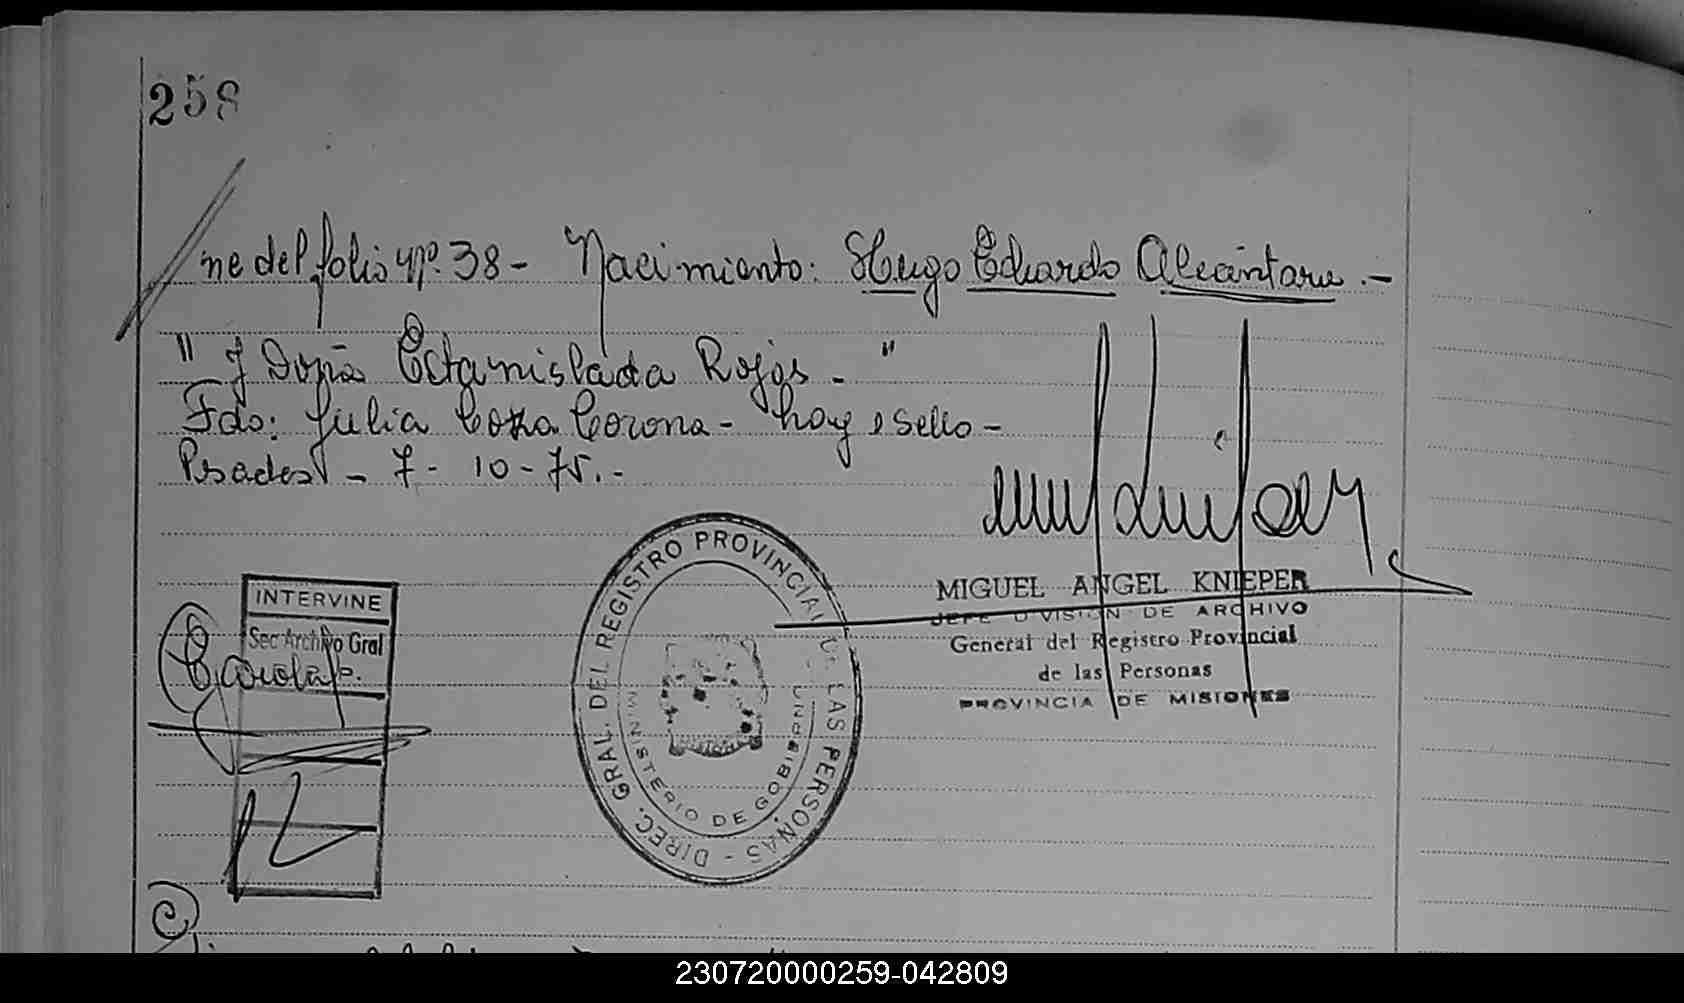 258
ne del folio Nº 38 - Nacimiento: Hugo Eduardo Alcántara.-
" y Doña Estanislada Rojas - "
Fdo: Julia Coza Corona - hay 1 sello -
Psadas - 7 - 10 - 75.-
MIGUEL ANGEL KNIEPER
JEFE DIVISION DE ARCHIVO
General del Registro Provincial
de las Personas
PROVINCIA DE MISIONES
INTERVINE
Sec Archivo Gral
DIREC. GRAL. DEL REGISTRO PROVINCIAL DE LAS PERSONAS -
MINISTERIO DE GOBIERNO
230720000259-042809